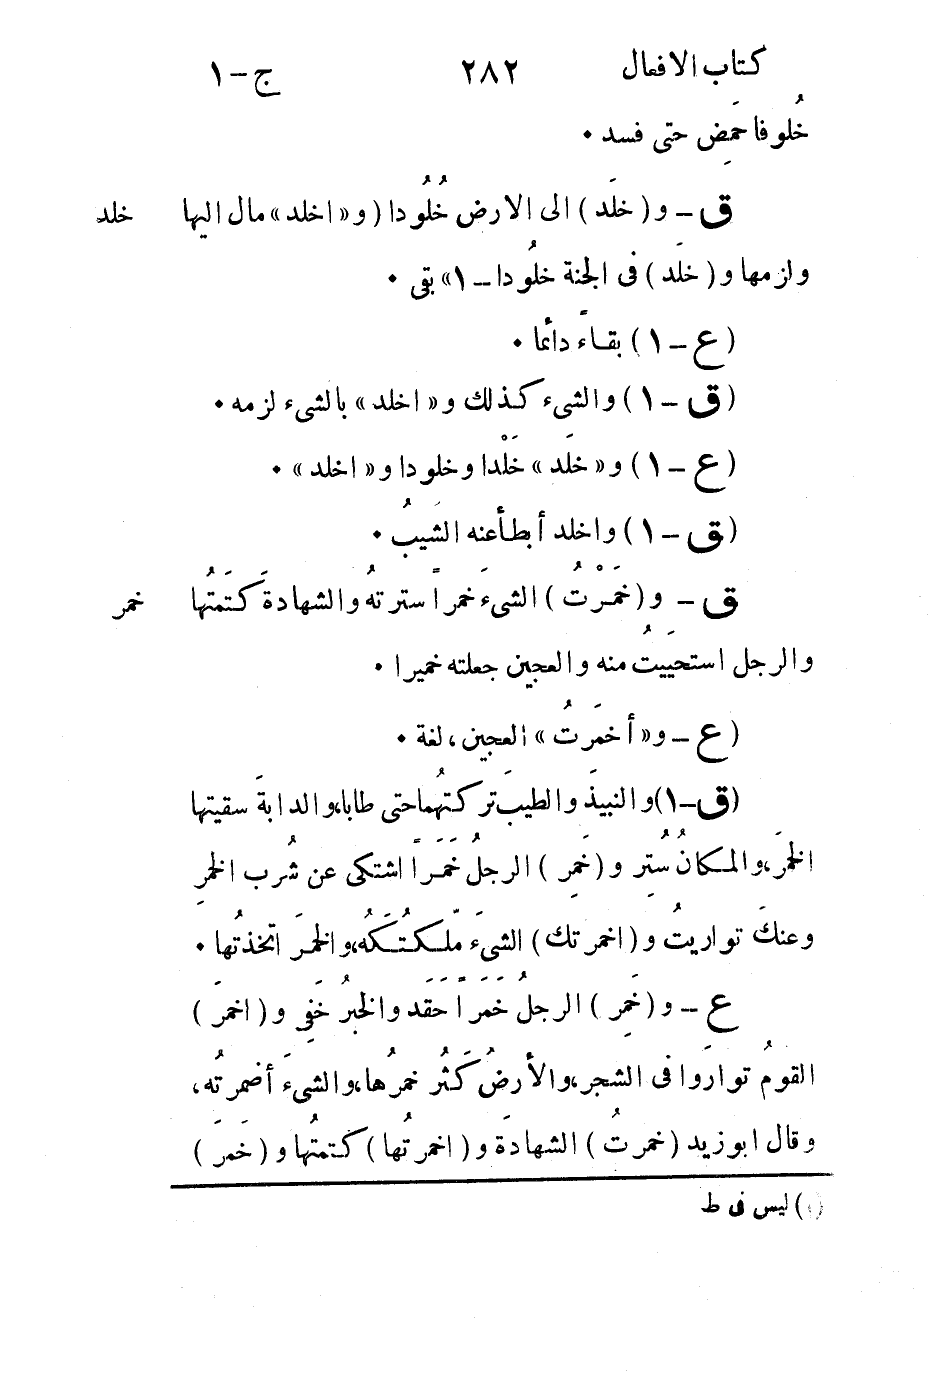 كتاب الافعال ٢٨٢ ج-١
خُلوفا حَمِض حتى فسد ٠
ق – و ( خلَد ) الى الارض خُلُودا ( و « اخلد » مال اليها خلد
ولزمها و ( خلَد ) فى الجنة خلُودا – ١» بقى ٠
( ع – ١ ) بقـاءً دائما ٠
( ق – ١ ) والشىء كـذلك و « اخلد » بالشىء لزمه ٠
( ع – ١ ) و « خلَد » خَلْدا وخلودا و « اخلد » ٠
( ق – ١ ) واخلد أبطأعنه الشَيبُ ٠
ق – و ( خمَرْتُ ) الشىءَ خمراً سترتهُ والشهادةَ كَتَمتُها خمر
والرجل استحيَيتُ منه والعجين جعلته خميرا ٠
( ع – و « أخمَرتُ » العجين ، لغة ٠
( ق-١ ) والنبيذَ والطيبَ تركتهُما حتى طابا، والدابةَ سقيتها
الخمرَ، والمـكانُ سُتِر و ( خمِر ) الرجلُ خَمَـراً اشتكى عن شُرب الخمرِ
وعنكَ تواريتُ و ( اخمرتك ) الشىءَ مّلـكتُـكَهُ، والخمرَ اتخذتُها ٠
ع – و ( خمِر ) الرجلُ خَمَراً حقَد والخبرُ خَفِى و ( اخمرَ )
القومُ توارَوا فى الشجر، والأرضُ كَثُر خمرُها، والشىءَ أضمرتُه،
وقال ابوزيد ( خمرتُ ) الشهادةَ و ( اخمرتُها ) كـتمتُها و ( خَمَرَ )
(١) ليس فى ط